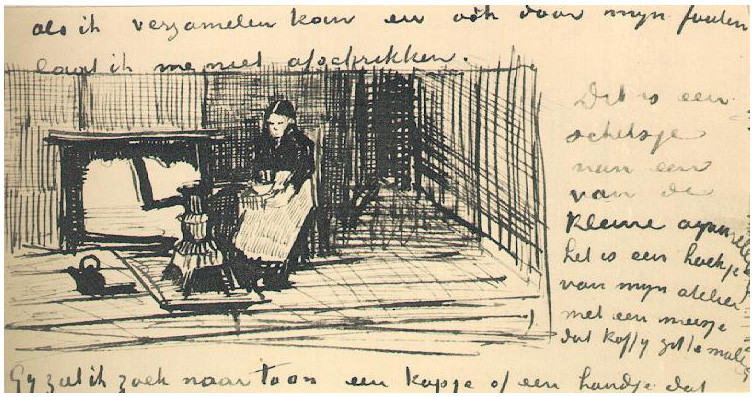 als ik verzamelen kan en ook door mijn fouten
laat ik me niet afschrikken.
Dit is een
schetsje
van een
van de
kleine aquarelle
het is een hoekje
van mijn atelier
met een meisje
dat koffij zit te malen
Gij ziet ik zoek naar toon een kopje of een handje dat